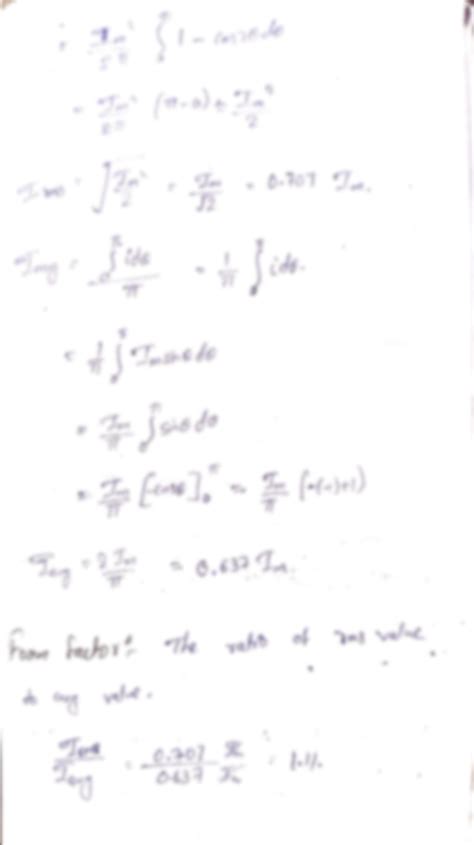 = Im²/2π ∫₀^π 1 - cos2θ dθ
= Im²/2π (π-0) = Im²/2
Irms = √Im²/2 = Im/√2 = 0.707 Im.
Iavg = ∫₀^π idθ/π = 1/π ∫₀^π idθ.
= 1/π ∫₀^π Im sinθ dθ
= Im/π ∫₀^π sinθ dθ
= Im/π [-cosθ]₀^π = Im/π (-(-1)+1)
Iavg = 2Im/π = 0.637 Im.
Form factor:- The ratio of rms value
to avg value.
Irms/Iavg = 0.707/0.637 = 1.11